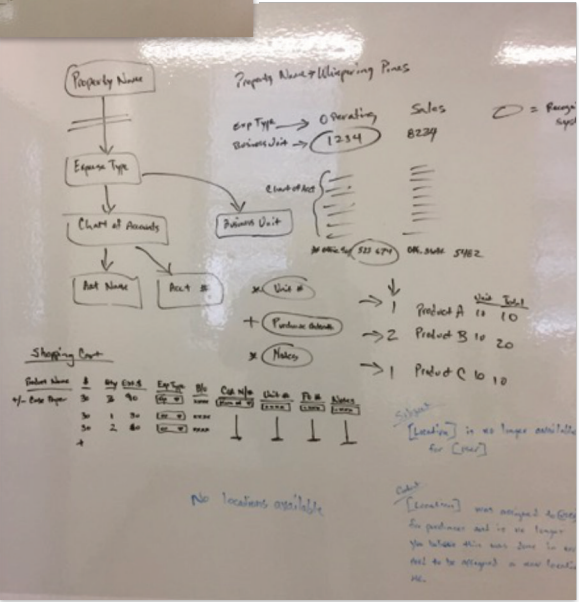 Property Name
Expense Type
Chart of Accounts
Business Unit
Acct Name
Acct #
Property Name → Whispering Pines
Exp Type → Operating Sales
Business Unit → 1234 8234
Chart of Acct
523 674 5482
* Unit #
+ Purchase
* Notes
Unit Total
→ 1 Product A 10 10
→ 2 Product B 10 20
→ 1 Product C 10 10
Shopping Cart
Product Name $ Qty Ext $ Exp Type B/u Unit # Po # Notes
+/- Case Paper 30 3 90
30 1 30
30 2 60
+
No locations available
Subject
[Location] is no longer available
for [user]
[Location] was assigned to
for purchases and is no longer
you believe this was done in
need to be assigned a new location